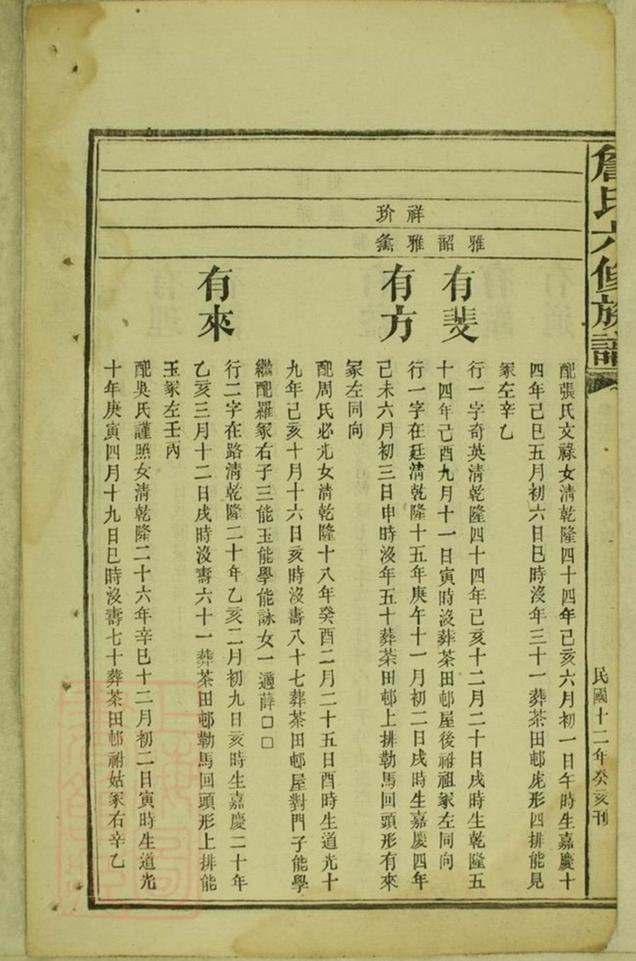 詹氏六修族譜
民國十二年癸亥刊
配張氏文祿女清乾隆四十四年己亥六月初一日午時生嘉慶十
四年己巳五月初六日巳時沒年三十一葬茶田邨虎形四排能見
冢左辛乙
雅
韶
有斐
行一字奇英清乾隆四十四年己亥十二月二十日戌時生乾隆五
十四年己酉九月十一日寅時沒葬茶田邨屋後祔祖冢左同向
祥雅
玠
有方
行一字在廷清乾隆十五年庚午十一月初二日戌時生嘉慶四年
己未六月初三日申時沒年五十葬茶田邨上排勒馬回頭形有來
冢左同向
配周氏必尤女清乾隆十八年癸酉二月二十五日酉時生道光十
九年己亥十月十六日亥時沒壽八十七葬茶田邨屋對門子能學
繼配羅冢右子三能玉能學能詠女一適薛□□
有來
行二字在路清乾隆二十年乙亥二月初九日亥時生嘉慶二十年
乙亥三月十二日戌時沒壽六十一葬茶田邨勒馬回頭形上排能
玉冢左壬丙
配吳氏謹照女清乾隆二十六年辛巳十二月初二日寅時生道光
十年庚寅四月十九日巳時沒壽七十葬茶田邨祔姑冢右辛乙